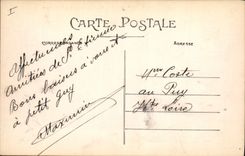 I
CARTE POSTALE
CORRESPONDANCE
ADRESSE
Affectueuses
Amitiés de St Etienne
Bons baisers à vous et
à petit Guy
Maximin
Mme Coste
au Puy
Hte Loire